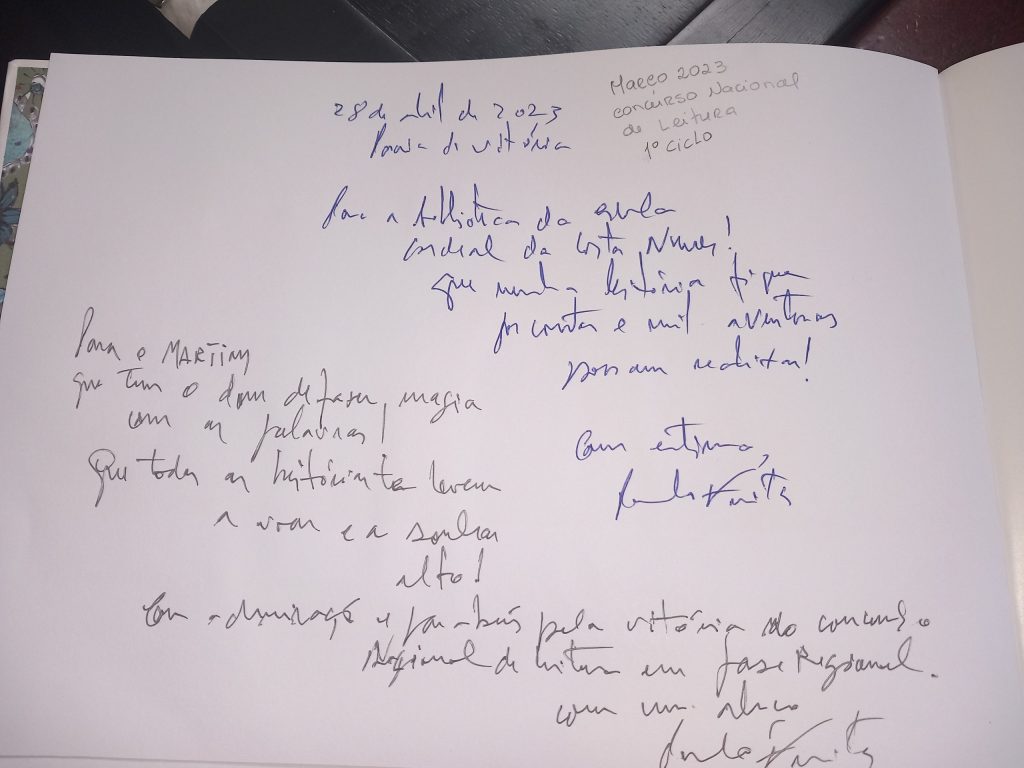 28 de abril de 2023
Praia da Vitória
Março 2023
concurso Nacional
de Leitura
1º Ciclo
Para a biblioteca da escola
Cardeal da Costa Nunes!
que nenhuma história fique
por contar e mil aventuras
possam realizar!
Com estima,
Para o MARTIM
que tem o dom de fazer magia
com as palavras!
Que todas as histórias te levem
a voar e a sonhar
alto!
Com admiração e parabéns pela vitória no concurso
Nacional de leitura em fase Regional.
com um abraço